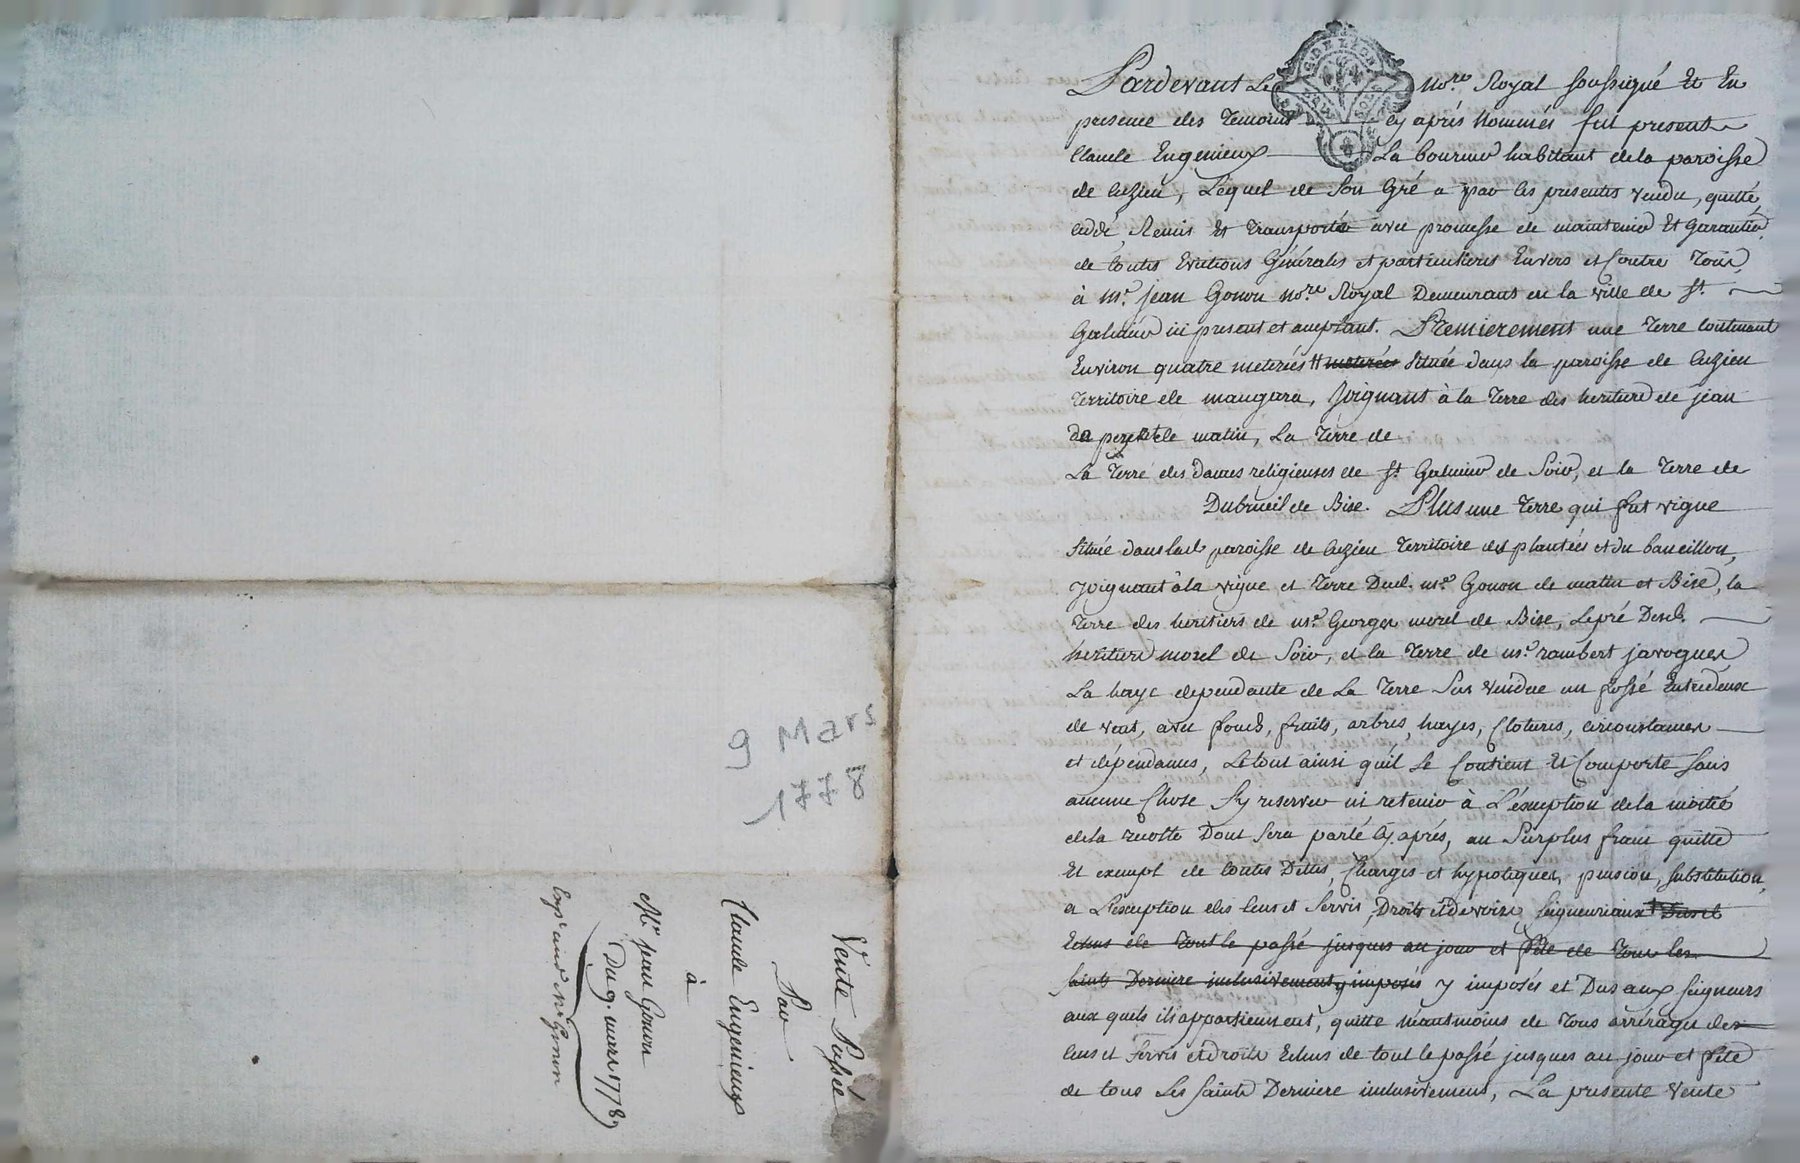 9 Mars
1778
Vente Passée
Par
Claude Engenieux
à
Mr. jean Gonon
Du 9. mars 1778
Exp. Gonon
GDE LION
Pardevant Le Nore. Royal soussigné Et En
presence des Temoins cy aprés Nommés fut present
Claude Engenieux Laboureur habitant de la paroisse
de Cuzieu, Lequel de Son Gré a par les presentes vendu, quitté,
cedé, Remis Et Transporté avec promesse de maintenir Et Garantir
de toutes Evictions Générales et particulieres Envers et Contre Tous,
à Me. jean Gonon nore. Royal Demeurant en la ville de St.
Galmier ici present et acceptant. Premierement une Terre Contenant
Environ quatre meterées # meterées Située dans la paroisse de Cuzieu
Territoire de maugara, Joignant à la Terre des heritiers de jean
de matin, La Terre de
La Terre des Dames religieuses de St. Galmier de Soir, et la Terre de
Dubrueil de Bise. Plus une Terre qui fut vigne
Située dans lad. paroisse de Cuzieu Territoire des plantées et du baneillon,
joignant à la vigne et Terre Dud. me. Gonon de matin et Bise, la
Terre des heritiers de me. George morel de Bise, Le pré Desd.
heritiers morel de Soir, et la Terre de me. rambert javogues
La haye dependante de La Terre Sus Vendue un fossé Entredeux
de vent, avec fonds, fruits, arbres, hayes, Clotures, circonstances
et dépendances, Le tout ainsi qu'il Se Contient Et Comporte Sans
aucune Chose Sy reserver ni retenir à L'exception de la moitié
de la recolte Dont Sera parlé Cy. aprés, au Surplus franc quitte
Et exempt de toutes Dettes, Charges et hypoteques, pension, Substitution,
a L'exception des Cens et Servis, Droits et devoirs Seigneuriaux + Dus et
Echus de Tout le passé jusques au jour et fête de Tous les
Saints Derniere inclusivement y imposés y imposés et Dus aux Seigneurs
aux quels ils appartiennent, quitte néantmoins de Tous arrérages des
Cens et Servis et droits Echus de tout le passé jusques au jour et fête
de tous Les Saints Derniere inclusivement, La presente Vente